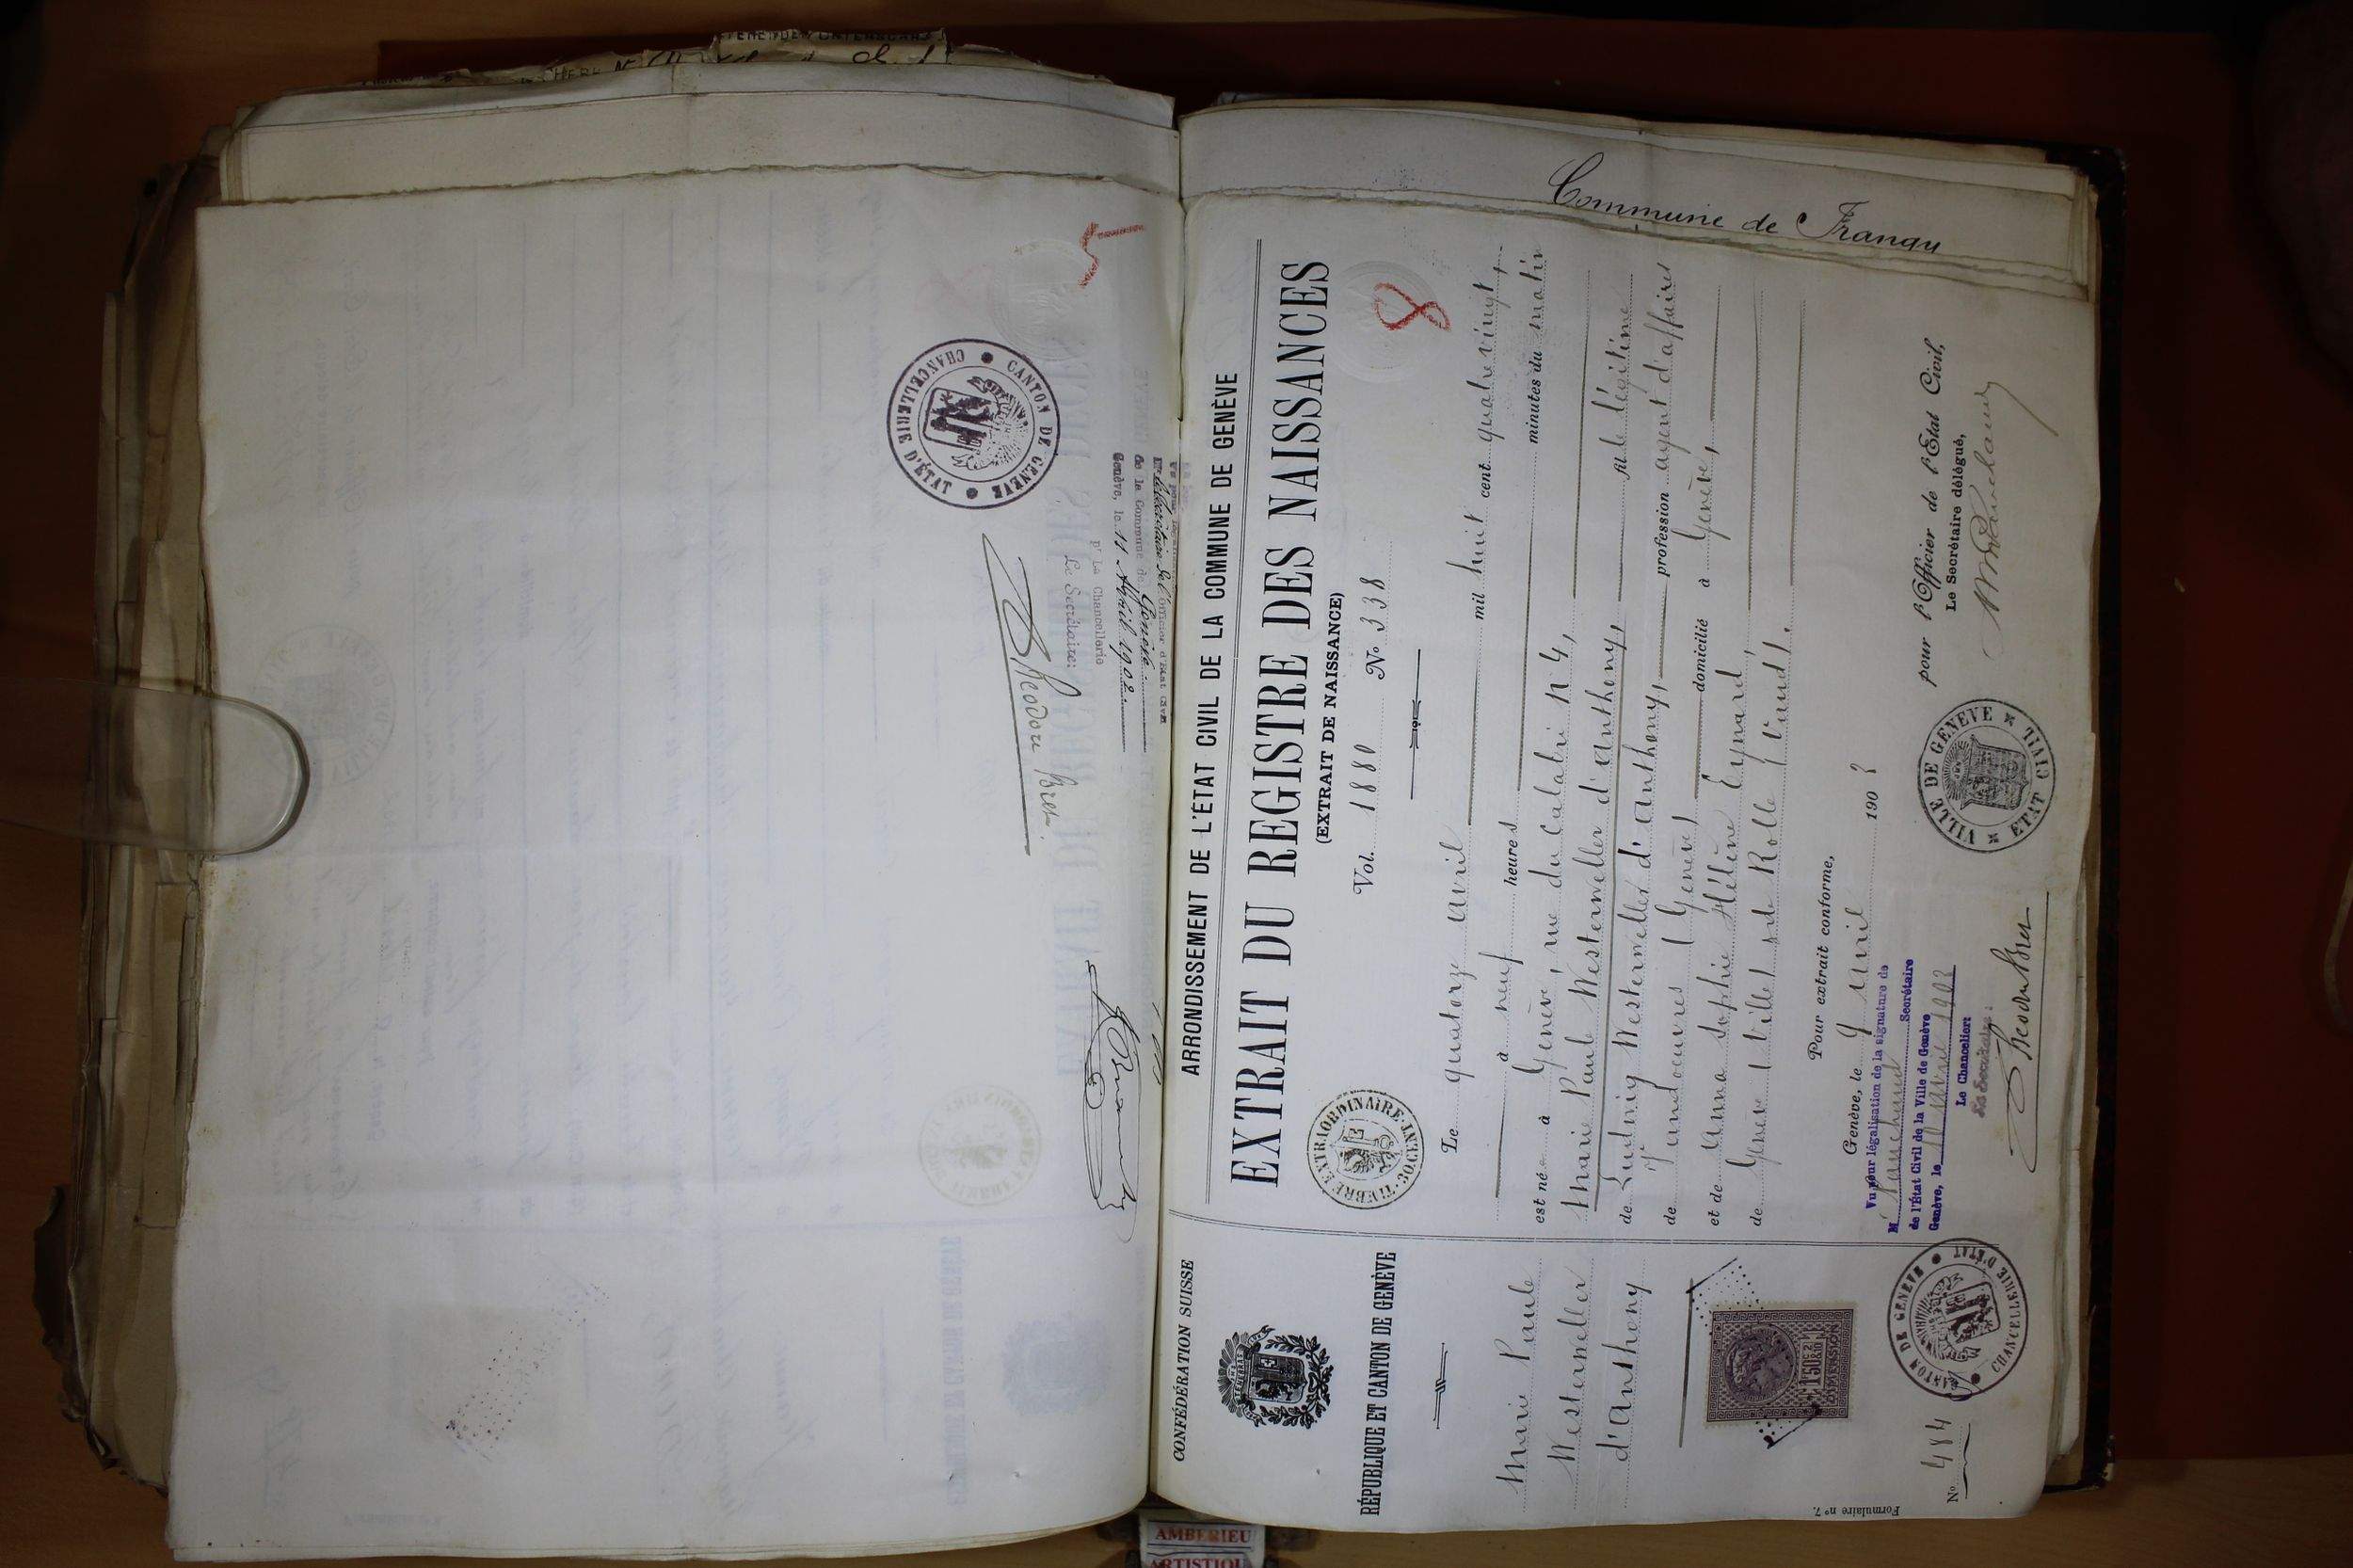 5
CANTON DE GENÈVE
CHANCELLERIE D'ÉTAT
de la Commune de Genève.
Genève, le 11 Avril 1902.
pr La Chancellerie
Le Secrétaire:
Théodore Bret.
Commune de Frangy
CONFÉDÉRATION SUISSE
RÉPUBLIQUE ET CANTON DE GENÈVE
Marie Paule
Westerweller
d'Anthony
1 50c
DIMENSION
CANTON DE GENÈVE
CHANCELLERIE D'ÉTAT
No 484
Formulaire no 7.
ARRONDISSEMENT DE L'ÉTAT CIVIL DE LA COMMUNE DE GENÈVE
EXTRAIT DU REGISTRE DES NAISSANCES
(EXTRAIT DE NAISSANCE)
TIMBRE EXTRAORDINAIRE
Vol. 1880 No 338
8
Le quatorze avril mil huit cent quatrevingt,
à neuf heures minutes du matin
est né à Genève, rue du Calabri No 4,
Marie Paule Westerweller d'Anthony,
de Ludwig Westerweller d'Anthony, fille légitime
de Jandoeuvres (Genève) profession agent d'affaires
domicilié à Genève,
et de Anna Sophie Hélène Eynard,
de Genève (Ville) et de Rolle (Vaud).
Pour extrait conforme,
Genève, le 9 avril 1903
pour l'Officier de l'Etat Civil,
Le Secrétaire délégué,
VILLE DE GENEVE
ETAT CIVIL
Vu pour légalisation de la signature de
M Secrétaire
de l'État Civil de la Ville de Genève
Genève, le avril 1903
Le Chancelier:
Le Secrétaire:
Théodore Bret
AMBERIEU